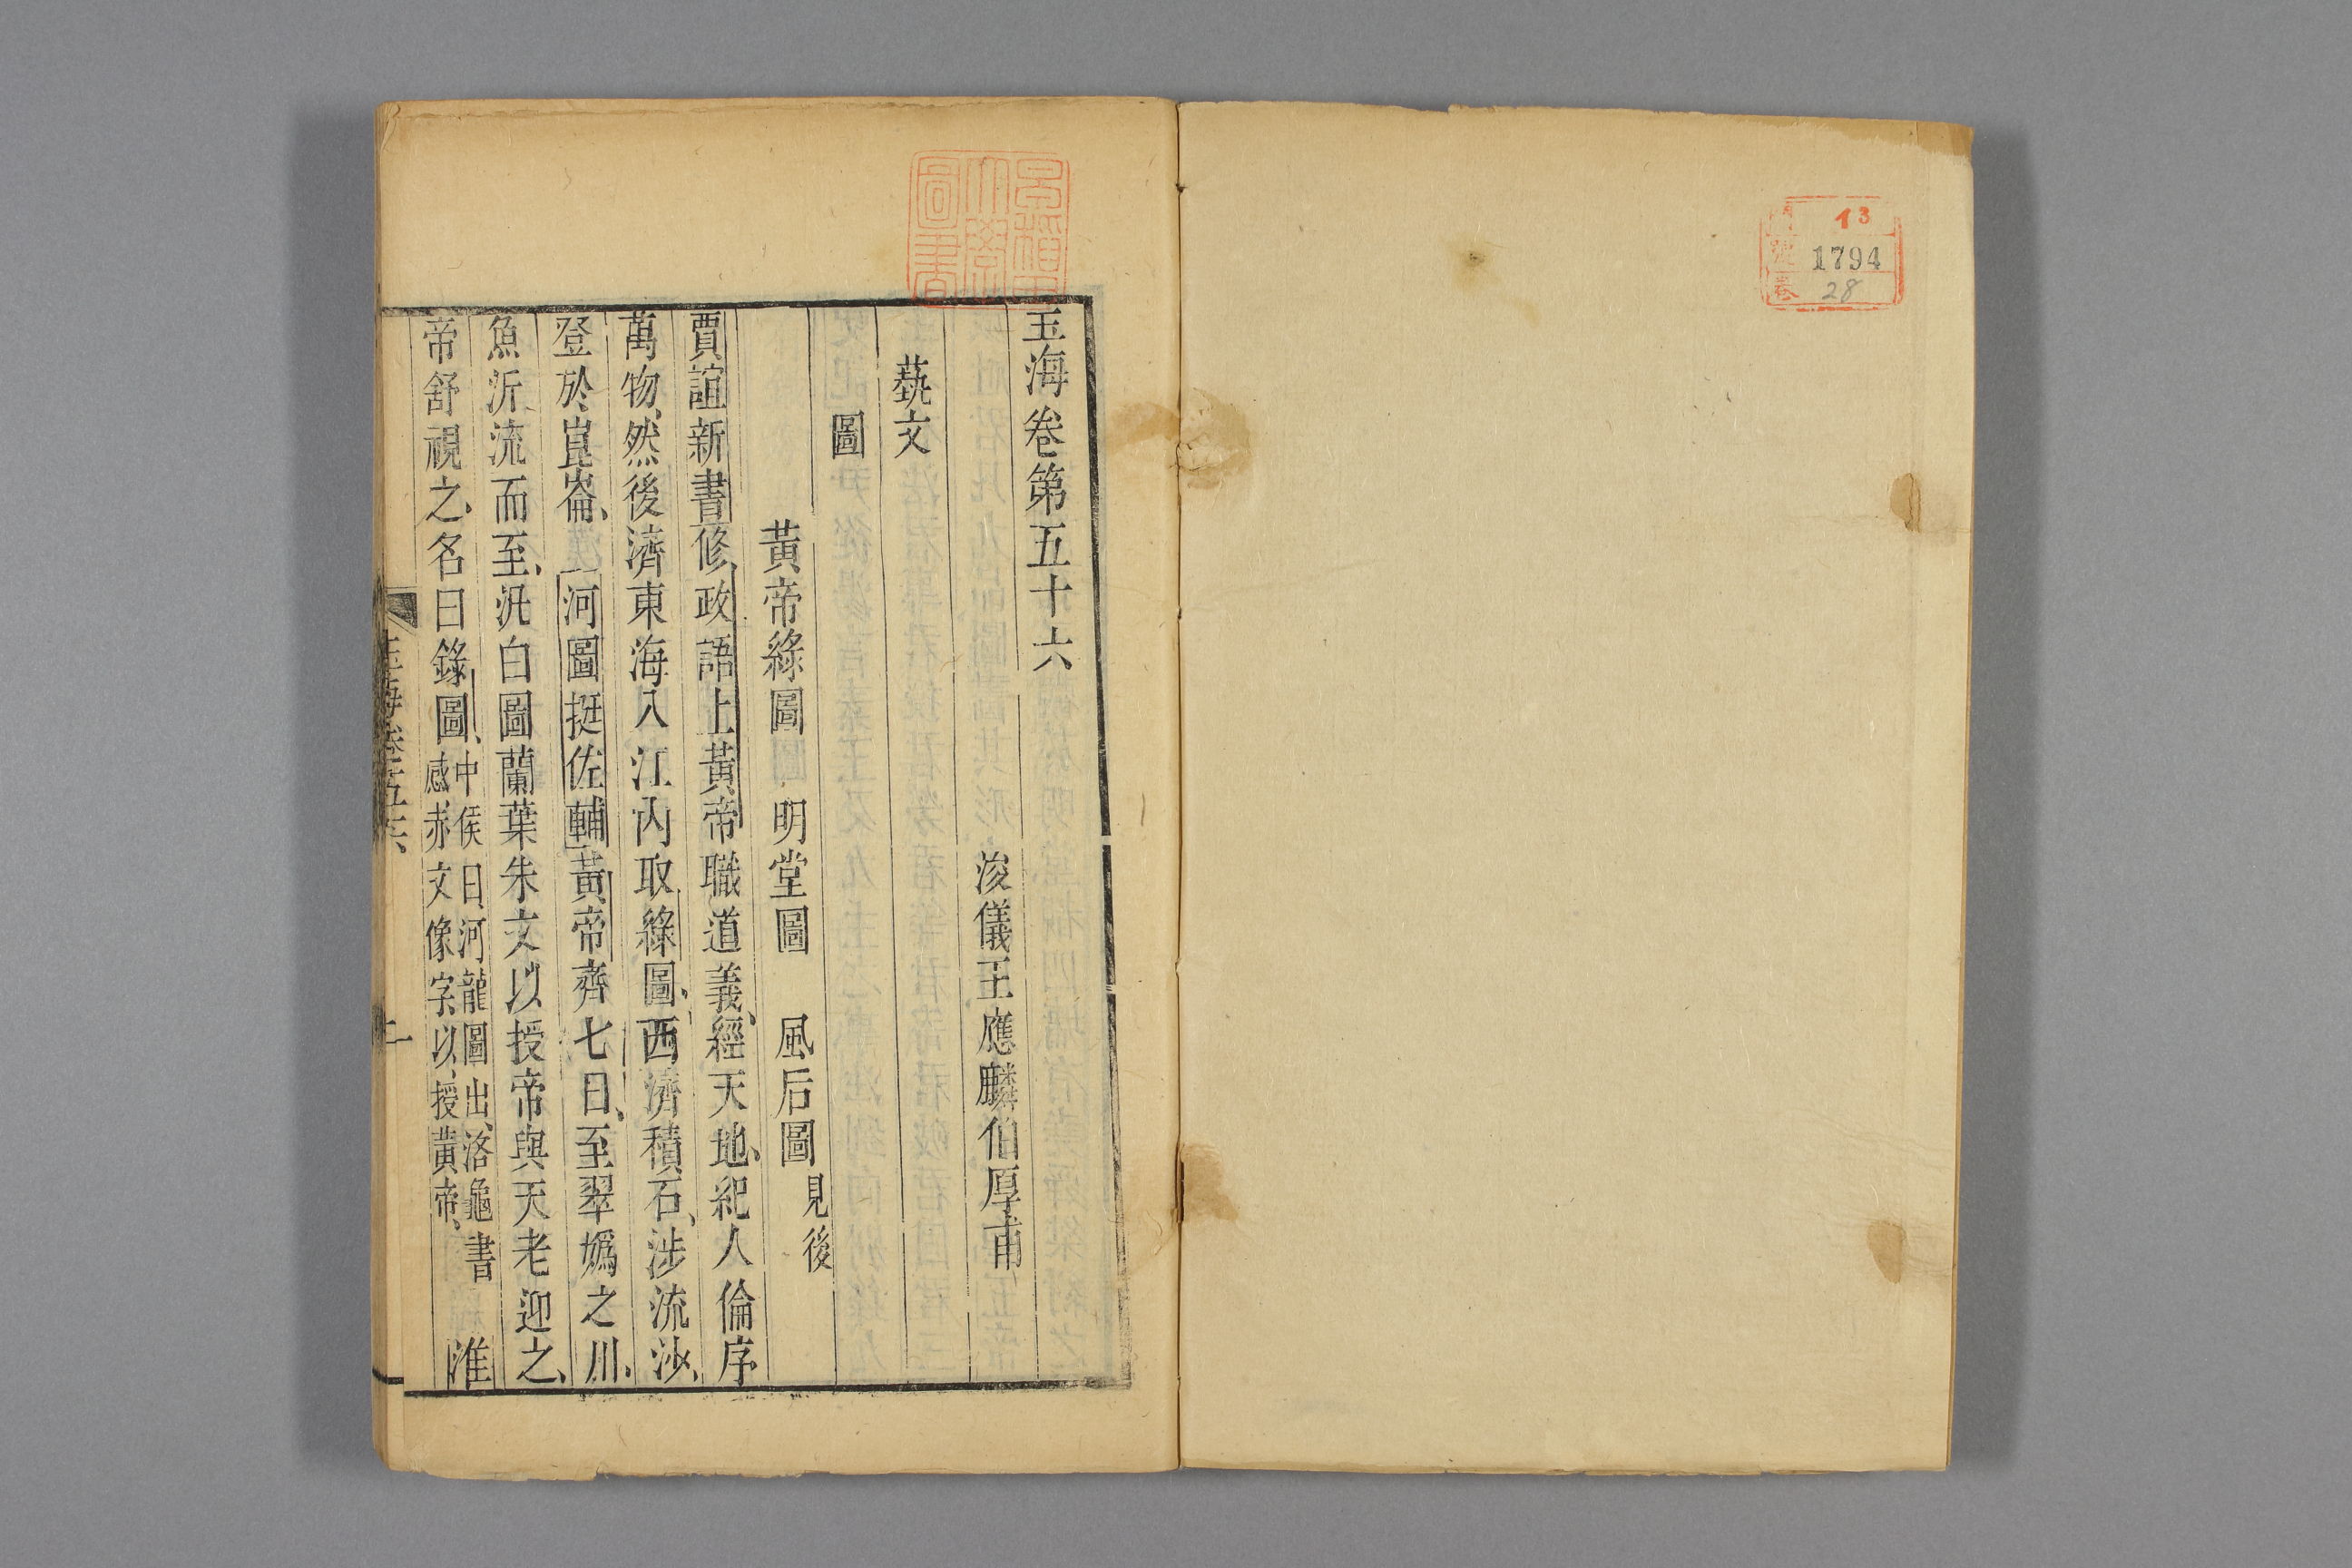 門 13
號 1794
卷 28
早稻田大學圖書
玉海卷第五十六
浚儀王應麟伯厚甫
蓺文
圖
黃帝綠圖 明堂圖 風后圖 見後
賈誼新書修政語上黃帝職道義、經天地、紀人倫序
萬物、然後濟東海入江內取綠圖、西濟積石、涉流沙、
登於崑崙、河圖挺佐輔黃帝齊七日、至翠嬀之川、
魚泝流而至、汎白圖蘭葉朱文以授帝與天老迎之、
帝舒視之、名曰錄圖、
中候曰、河龍圖出、洛龜書
感、赤文像字、以授黃帝、
淮
玉海卷五十六
一